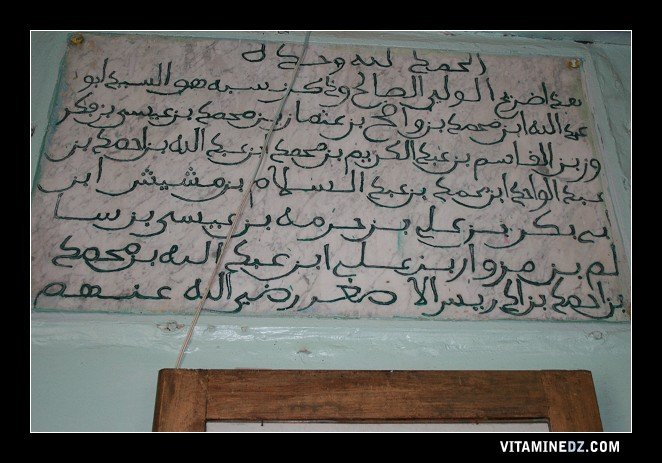 الحمد لله وحده
هذا ضريح الولي الصالح وذكر نسبه هو السيد ابو
عبد الله ابن محمد بن واضح بن عثمان بن محمد بن عيسى بن فكر
بن القاسم بن عبد الكريم بن محمد بن عبد الله بن احمد بن
عبد الواحد ابن محمد بن عبد السلام بن مشيش ابن
ابي بكر بن علي بن حرمه بن عيسى بن سا
لم بن مزوار بن علي ابن عبد الله بن محمد
بن احمد بن ادريس الاصغر رضي الله عنهم
VITAMINEDZ.COM